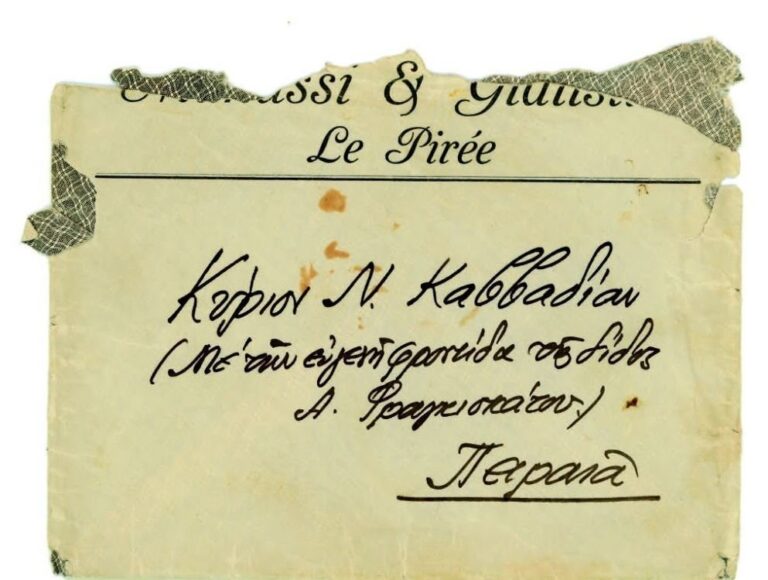 &
Le Pirée
Κύριον Ν. Καββαδίαν
(Μέ τήν εὐγενῆ φροντίδα τῆς δίδος
Α. Φραγκισκάτου.)
Πειραιᾶ